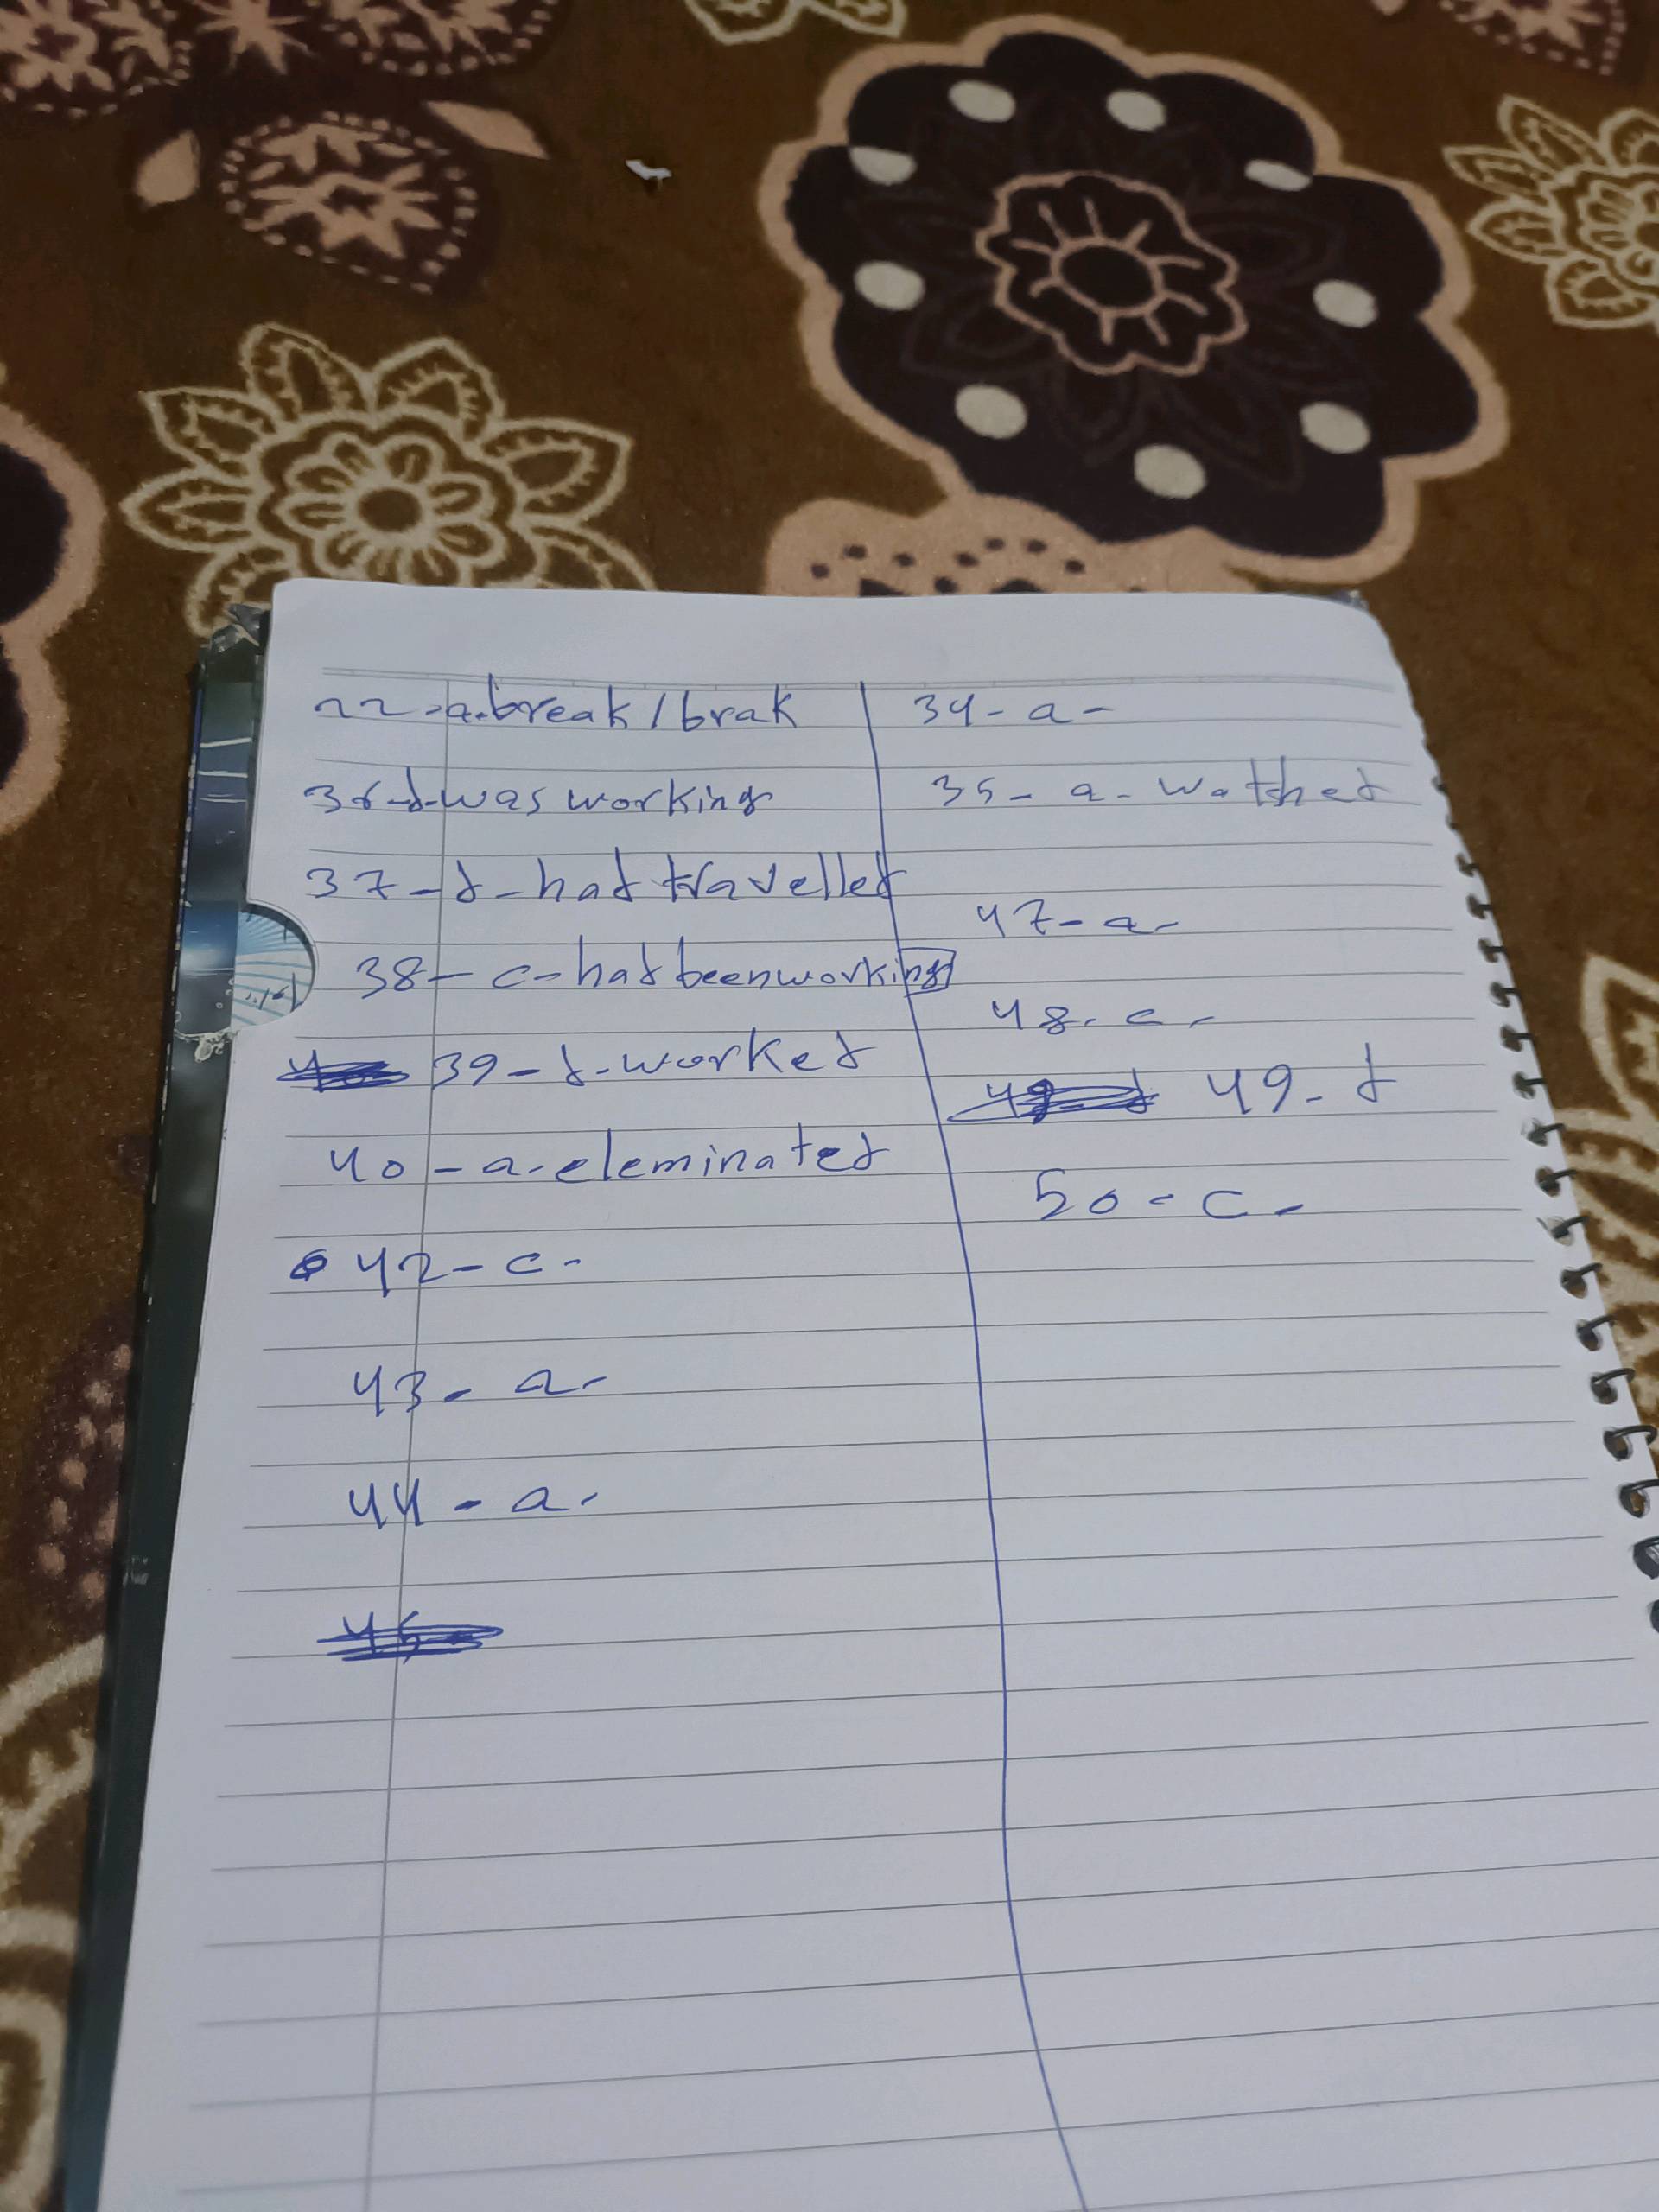 22-a.break/brak
36-d-was working
37-d-had travelled
38-c-had been working
39-d-worked
40-a-eleminated
42-c-
43-a-
44-a-
34-a-
35-a-watched
47-a-
48-c-
49-d
50-c-